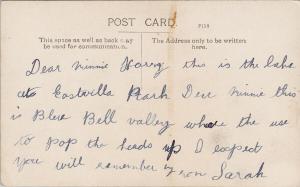 POST CARD.
P118
This space as well as back may
be used for communication.
The Address only to be written
here.
Dear Minnie Harvy this is the Lake
at Eastville Park Dear Minnie this
is Blue Bell valley where the use
to pop the heads up I expect
you will remember from Sarah